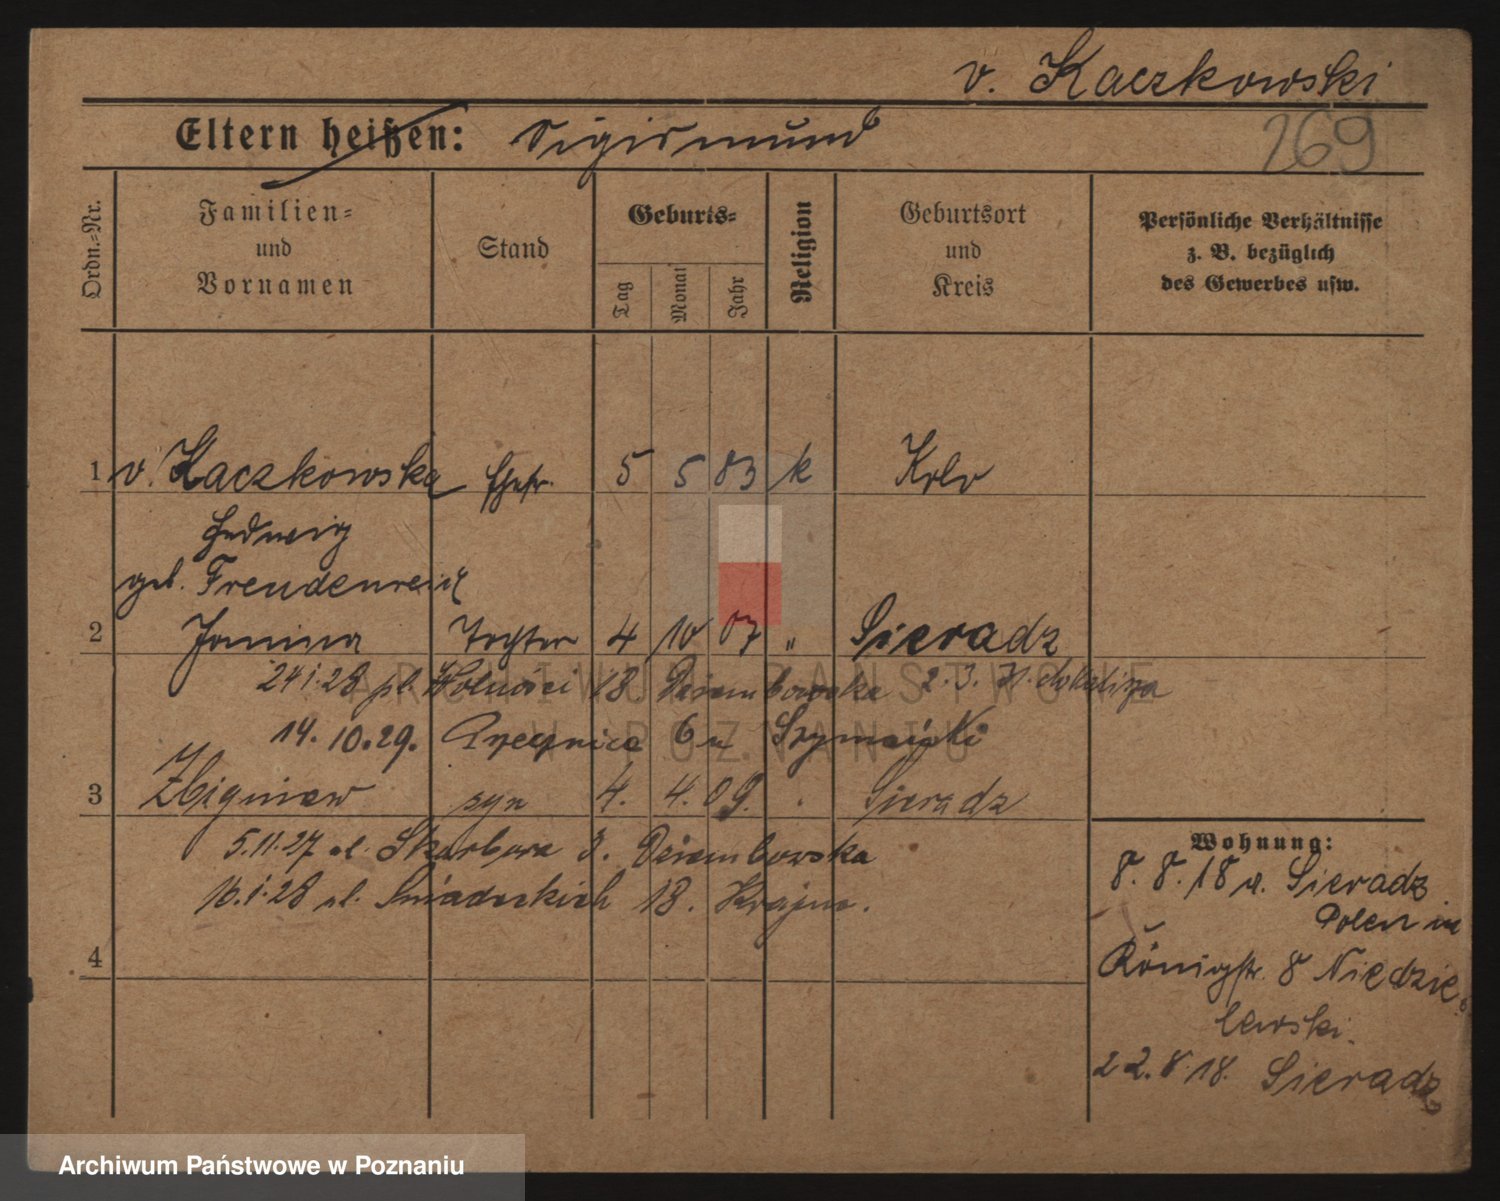 v. Kaczkowski
Eltern heißen: Sigismund
269
Ordn.-Nr.
Familien-
und
Vornamen
Stand
Geburts-
Tag
Monat
Jahr
Religion
Geburtsort
und
Kreis
Persönliche Verhältnisse
z. B. bezüglich
des Gewerbes usw.
1 v. Kaczkowska Ehefr. 5 5 83 k
Hedwig
geb. Freudenreich
2 Janina Tochter 4 10 07 " Sieradz
24.1.28 pl. Wolności 18 Dziembowska 2.3.
14.10.29. 6 Szymański
3 Zbigniew syn 4. 4. 09. . Sieradz
5.11.27 ul. Skarbowa 3. Dziembowska
16.1.28 ul. Śniadeckich 18. Krajna.
4
Wohnung:
8.8.18 v. Sieradz
Polen in
Königstr. 8 Niedzie
lewski.
22.8.18. Sieradz
ARCHIWUM PAŃSTWOWE
W POZNANIU
Archiwum Państwowe w Poznaniu